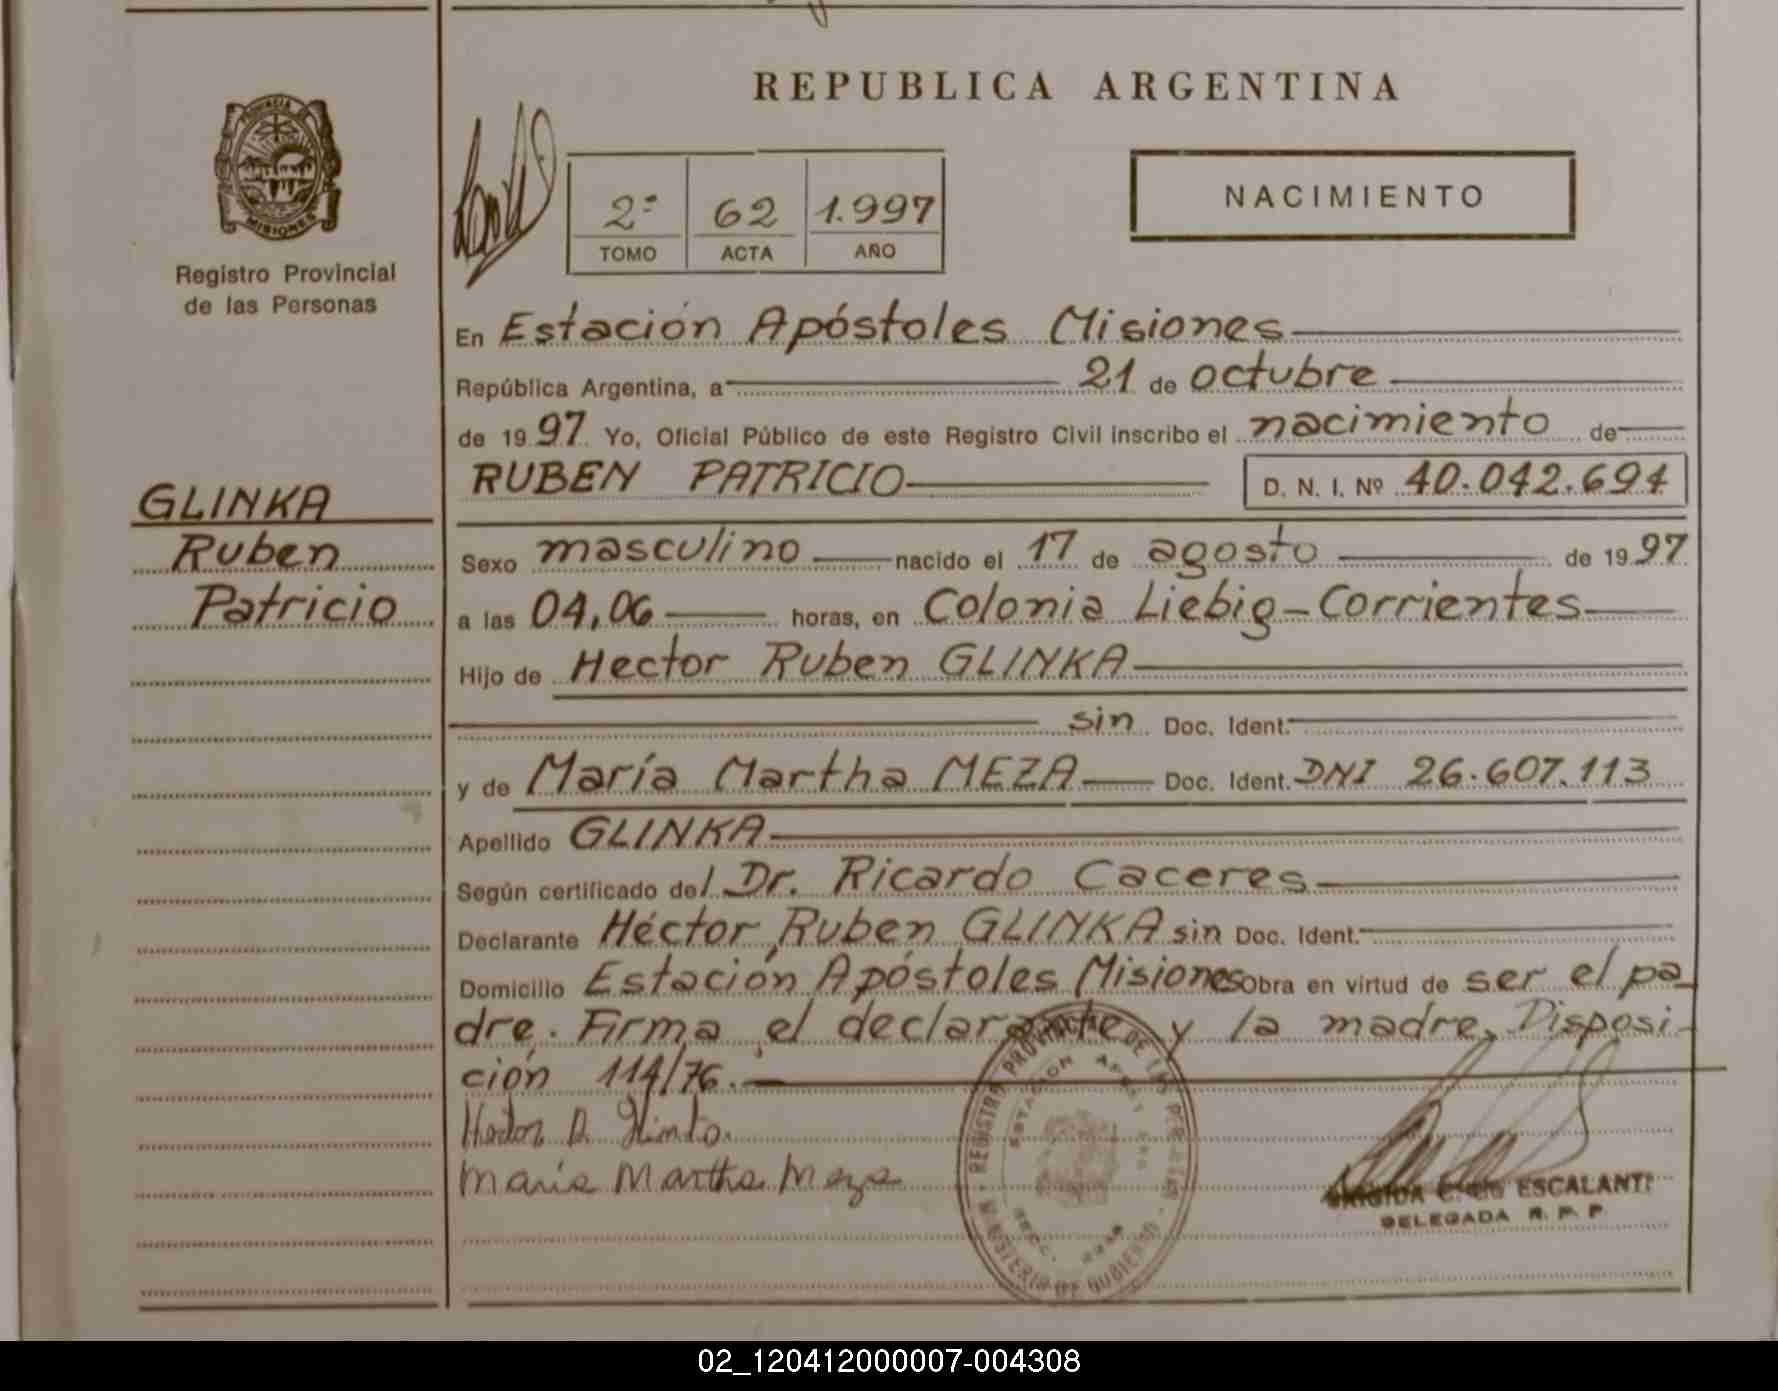 REPUBLICA ARGENTINA
PROVINCIA
MISIONES
Registro Provincial
de las Personas
2º 62 1.997
TOMO ACTA AÑO
NACIMIENTO
En Estación Apóstoles Misiones
República Argentina, a 21 de octubre
de 1997 Yo, Oficial Público de este Registro Civil inscribo el nacimiento de
RUBEN PATRICIO D. N. I. Nº 40.042.694
GLINKA
Ruben
Patricio
Sexo masculino nacido el 17 de agosto de 1997
a las 04,06 horas, en Colonia Liebig-Corrientes
Hijo de Hector Ruben GLINKA
sin Doc. Ident.
y de María Martha MEZA Doc. Ident. DNI 26.607.113
Apellido GLINKA
Según certificado del Dr. Ricardo Caceres
Declarante Héctor Ruben GLINKA sin Doc. Ident.
Domicilio Estación Apóstoles Misiones Obra en virtud de ser el pa-
dre. Firma el declarante y la madre. Disposi-
ción 114/76.
María Martha Meza
REGISTRO PROVINCIAL DE LAS PERSONAS
MINISTERIO DE GOBIERNO
ESTACION
ESCALANTE
DELEGADA R. P. P.
02_120412000007-004308